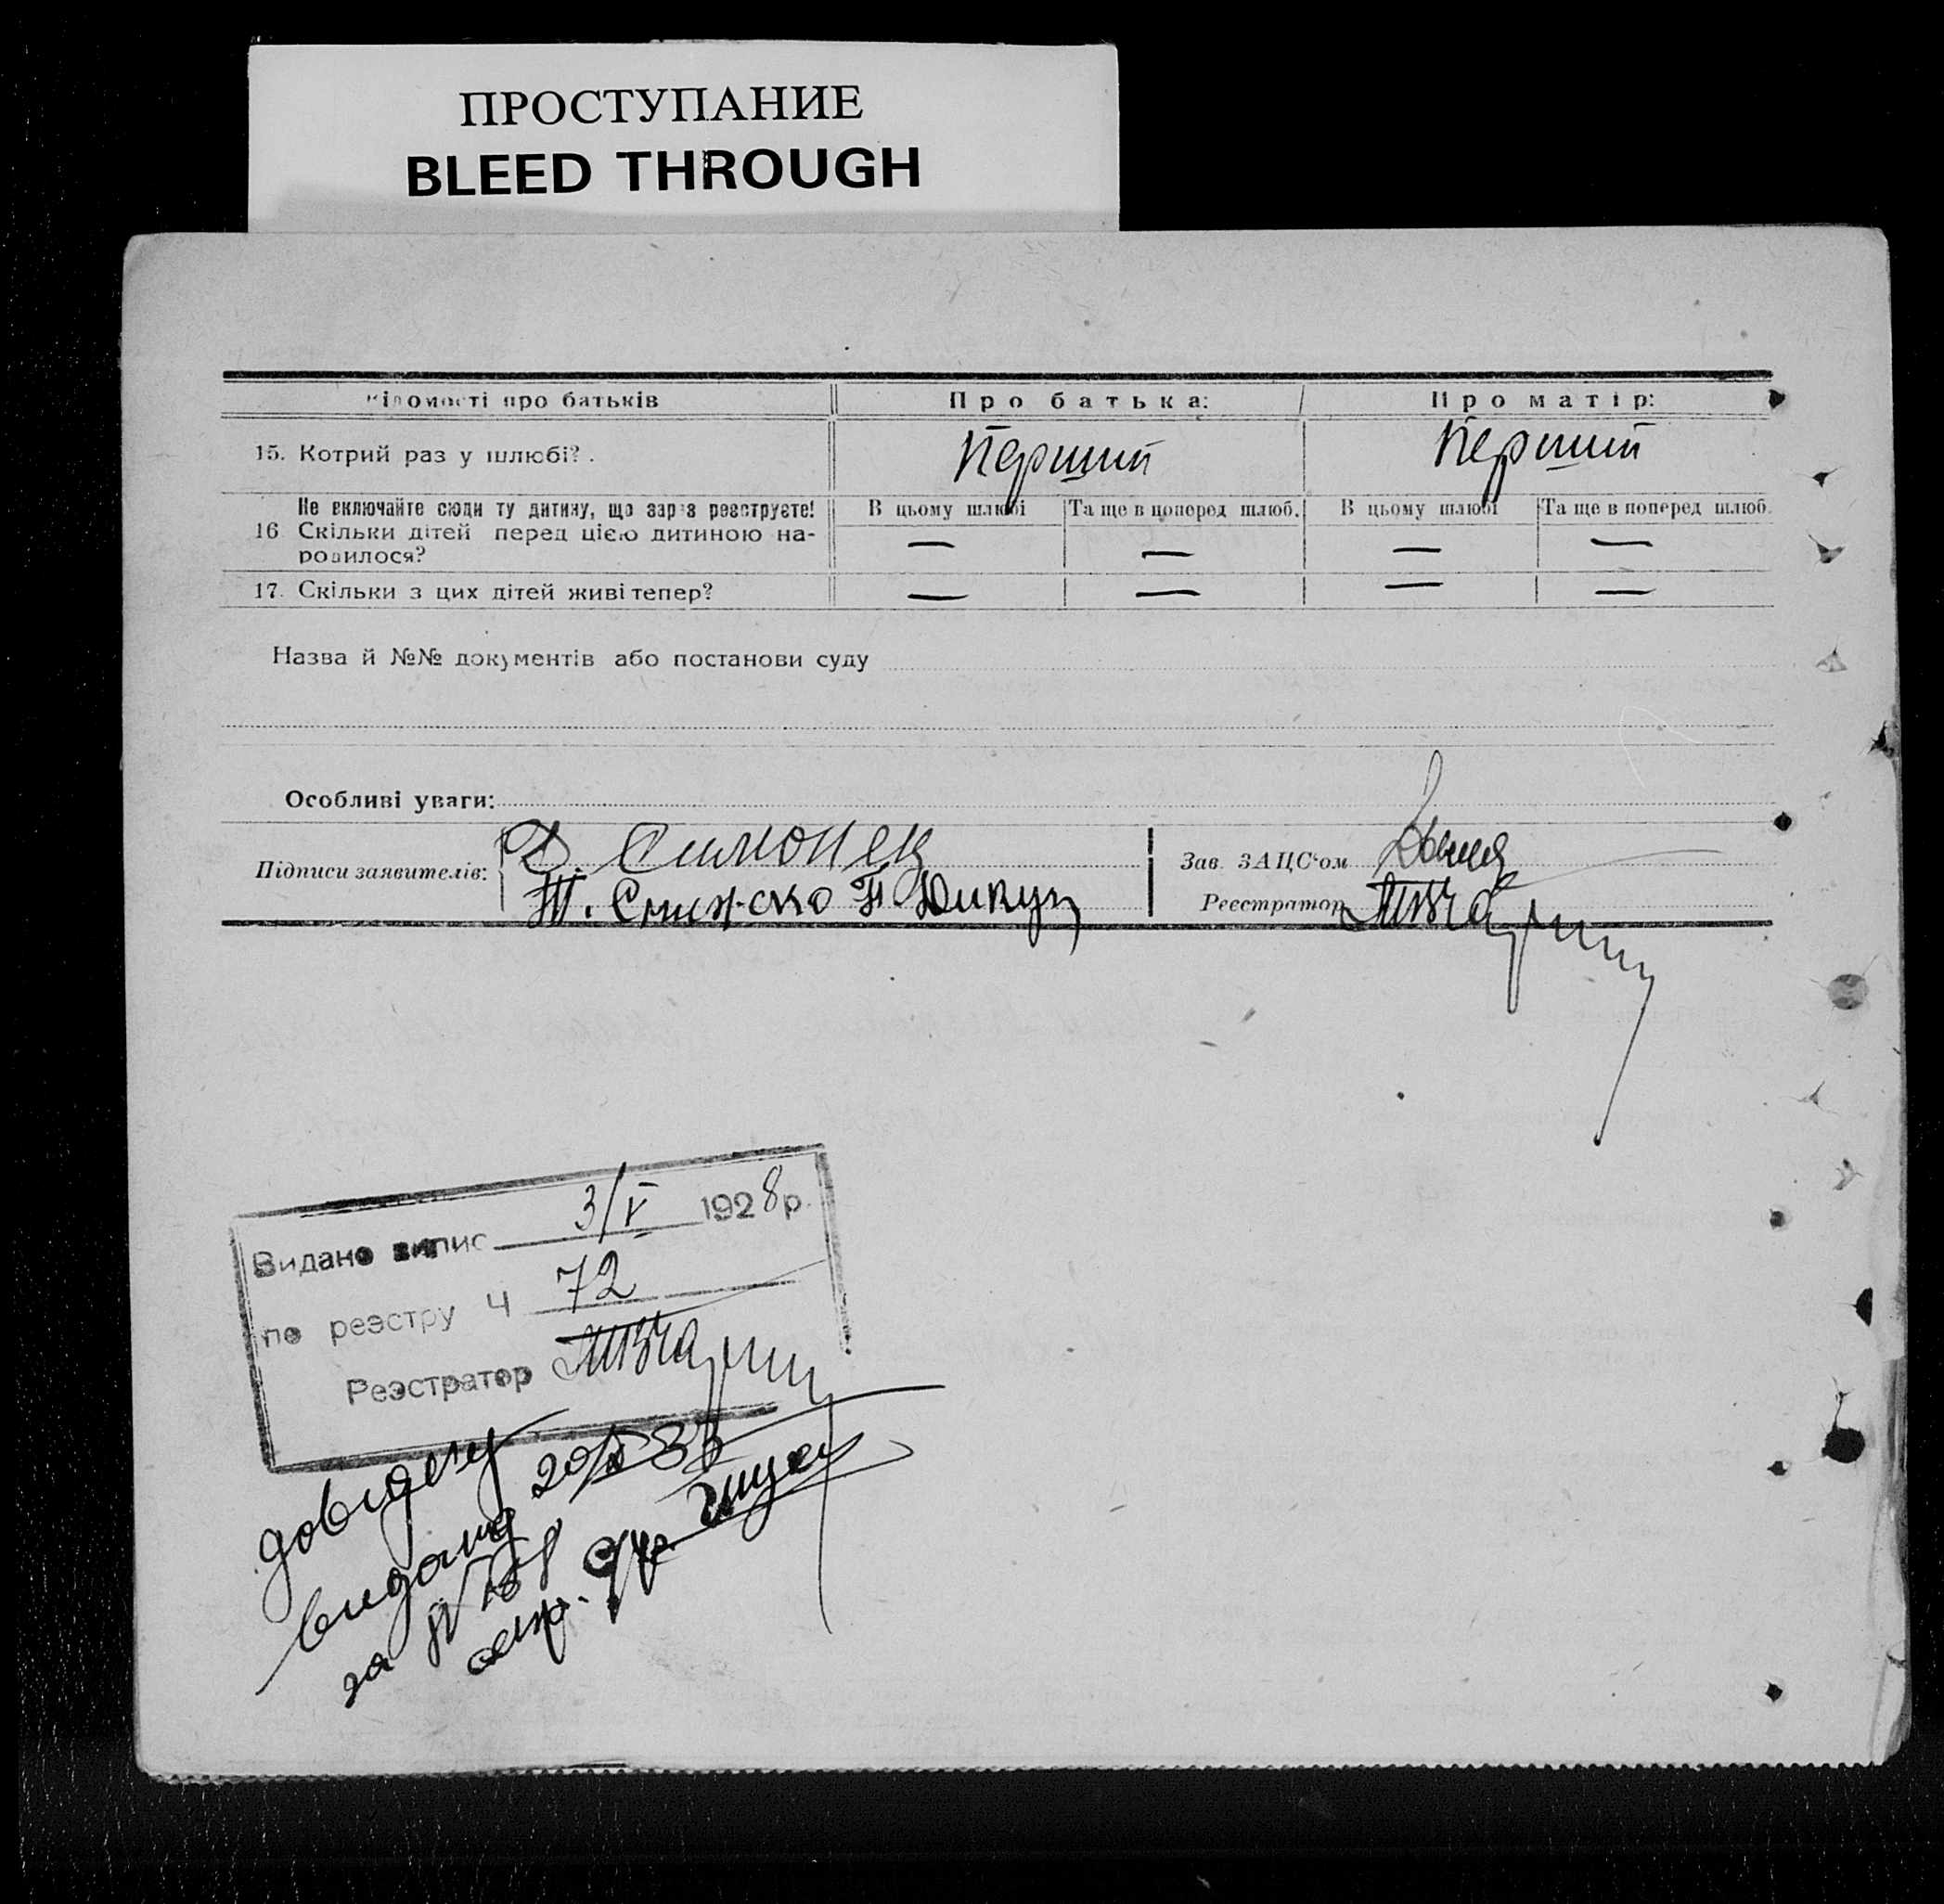 ПРОСТУПАНИЕ
BLEED THROUGH
Відомості про батьків
Про батька:
Про матір:
15. Котрий раз у шлюбі?.
Перший
Перший
Не включайте сюди ту дитину, що зараз реєструєте!
В цьому шлюбі
Та ще в поперед шлюб.
В цьому шлюбі
Та ще в поперед шлюб.
16 Скільки дітей перед цією дитиною на-
родилося?
— — — —
17. Скільки з цих дітей живі тепер?
— — — —
Назва й №№ документів або постанови суду
Особливі уваги:
Підписи заявителів:
Зав. ЗАЦС'ом
Реєстратор
Видано випис 3/V 1928р.
по реэстру Ч 72
Реэстратор
довідку
видано 20/X 33
за №